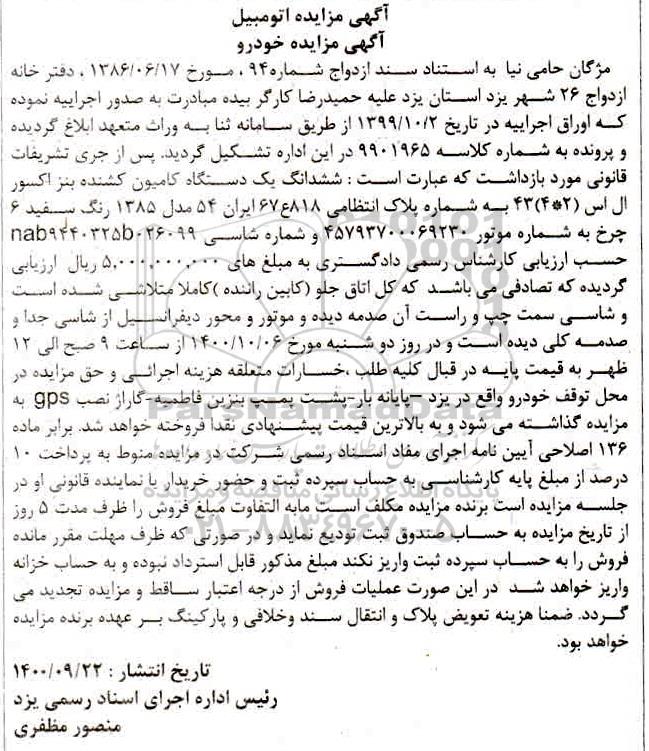 آگهی مزایده اتومبیل
آگهی مزایده خودرو
مژگان حامی نیا به استناد سند ازدواج شماره۹۴ ، مورخ ۱۳۸۶/۰۶/۱۷ ، دفتر خانه
ازدواج ۲۶ شهر یزد استان یزد علیه حمیدرضا کارگر بیده مبادرت به صدور اجراییه نموده
که اوراق اجراییه در تاریخ ۱۳۹۹/۱۰/۲ از طریق سامانه ثنا به وراث متعهد ابلاغ گردیده
و پرونده به شماره کلاسه ۹۹۰۱۹۶۵ در این اداره تشکیل گردید. پس از جری تشریفات
قانونی مورد بازداشت که عبارت است : ششدانگ یک دستگاه کامیون کشنده بنز اکسور
ال اس (۲*۴)۴۳ به شماره پلاک انتظامی ۸۱۸ع۶۷ ایران ۵۴ مدل ۱۳۸۵ رنگ سفید ۶
چرخ به شماره موتور ۴۵۷۹۳۷۰۰۰۶۹۲۳۰ و شماره شاسی nab۹۴۴۰۳۲۵b۰۲۶۰۹۹
حسب ارزیابی کارشناس رسمی دادگستری به مبلغ های ۵,۰۰۰,۰۰۰,۰۰۰ ریال ارزیابی
گردیده که تصادفی می باشد که کل اتاق جلو (کابین راننده )کاملا متلاشی شده است
و شاسی سمت چپ و راست آن صدمه دیده و موتور و محور دیفرانسیل از شاسی جدا و
صدمه کلی دیده است و در روز دو شنبه مورخ ۱۴۰۰/۱۰/۰۶ از ساعت ۹ صبح الی ۱۲
ظهر به قیمت پایه در قبال کلیه طلب ،خسارات متعلقه هزینه اجرائی و حق مزایده در
محل توقف خودرو واقع در یزد –پایانه بار-پشت پمپ بنزین فاطمیه-گاراژ نصب gps به
مزایده گذاشته می شود و به بالاترین قیمت پیشنهادی نقدا فروخته خواهد شد. برابر ماده
۱۳۶ اصلاحی آیین نامه اجرای مفاد اسناد رسمی شرکت در مزایده منوط به پرداخت ۱۰
درصد از مبلغ پایه کارشناسی به حساب سپرده ثبت و حضور خریدار یا نماینده قانونی او در
جلسه مزایده است برنده مزایده مکلف است مابه التفاوت مبلغ فروش را ظرف مدت ۵ روز
از تاریخ مزایده به حساب صندوق ثبت تودیع نماید و در صورتی که ظرف مهلت مقرر مانده
فروش را به حساب سپرده ثبت واریز نکند مبلغ مذکور قابل استرداد نبوده و به حساب خزانه
واریز خواهد شد در این صورت عملیات فروش از درجه اعتبار ساقط و مزایده تجدید می
گردد. ضمنا هزینه تعویض پلاک و انتقال سند وخلافی و پارکینگ بر عهده برنده مزایده
خواهد بود.
تاریخ انتشار : ۱۴۰۰/۰۹/۲۲
رئیس اداره اجرای اسناد رسمی یزد
منصور مظفری
ParsNamadData
پایگاه اطلاع رسانی مناقصه و مزایده
۰۲۱-۸۸۳۴۹۶۷۰-۵